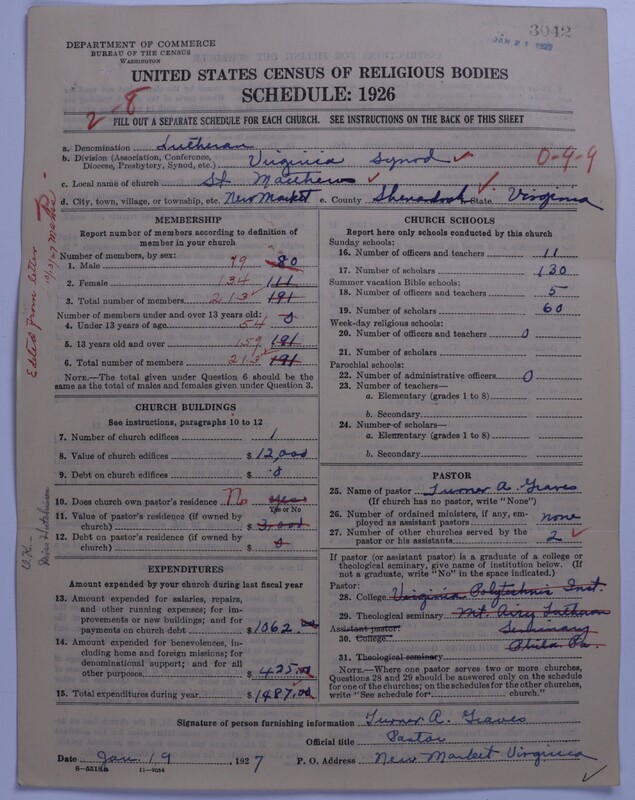 3042
JAN 21 1927
DEPARTMENT OF COMMERCE
BUREAU OF THE CENSUS
WASHINGTON
UNITED STATES CENSUS OF RELIGIOUS BODIES
SCHEDULE: 1926
2-8
FILL OUT A SEPARATE SCHEDULE FOR EACH CHURCH. SEE INSTRUCTIONS ON THE BACK OF THIS SHEET
a. Denomination Lutheran
b. Division (Association, Conference, Diocese, Presbytery, Synod, etc.) Virginia Synod 0-9-9
c. Local name of church St Matthews
d. City, town, village, or township, etc. New Market e. County Shenandoah State Virginia
Edited from letter
MEMBERSHIP
Report number of members according to definition of
member in your church
Number of members, by sex:
1. Male 79 80
2. Female 134 111
3. Total number of members 213 191
Number of members under and over 13 years old:
4. Under 13 years of age 54 0
5. 13 years old and over 159 191
6. Total number of members 213 191
NOTE.—The total given under Question 6 should be
the same as the total of males and females given under Question 3.
CHURCH BUILDINGS
See instructions, paragraphs 10 to 12
7. Number of church edifices 1
8. Value of church edifices $ 12,000
9. Debt on church edifices $ 0
10. Does church own pastor's residence No Yes
Yes or No
11. Value of pastor's residence (if owned by
church) $ 3,000
12. Debt on pastor's residence (if owned by
church) $ 0
O.K.-
Miss Hutchinson
EXPENDITURES
Amount expended by your church during last fiscal year
13. Amount expended for salaries, repairs,
and other running expenses; for im-
provements or new buildings; and for
payments on church debt $ 1062.00
14. Amount expended for benevolences, in-
cluding home and foreign missions; for
denominational support; and for all
other purposes $ 425.00
15. Total expenditures during year $ 1487.00
CHURCH SCHOOLS
Report here only schools conducted by this church
Sunday schools:
16. Number of officers and teachers 11
17. Number of scholars 130
Summer vacation Bible schools:
18. Number of officers and teachers 5
19. Number of scholars 60
Week-day religious schools:
20. Number of officers and teachers 0
21. Number of scholars
Parochial schools:
22. Number of administrative officers 0
23. Number of teachers—
a. Elementary (grades 1 to 8)
b. Secondary
24. Number of scholars—
a. Elementary (grades 1 to 8)
b. Secondary
PASTOR
25. Name of pastor Turner A. Graves
(If church has no pastor, write "None")
26. Number of ordained ministers, if any, em-
ployed as assistant pastors none
27. Number of other churches served by the
pastor or his assistants 2
If pastor (or assistant pastor) is a graduate of a college or
theological seminary, give name of institution below. (If
not a graduate, write "No" in the space indicated.)
Pastor:
28. College Virginia Polytechnic Inst.
29. Theological seminary Mt. Airy Lutheran
Assistant pastor: Seminary
30. College Phila. Pa.
31. Theological seminary
NOTE.—Where one pastor serves two or more churches,
Questions 28 and 29 should be answered only on the schedule
for one of the churches; on the schedules for the other churches,
write "See schedule for church."
Signature of person furnishing information Turner A. Graves
Official title Pastor
Date Jan. 19, 1927 P. O. Address New Market Virginia
8-5518a 11-9054